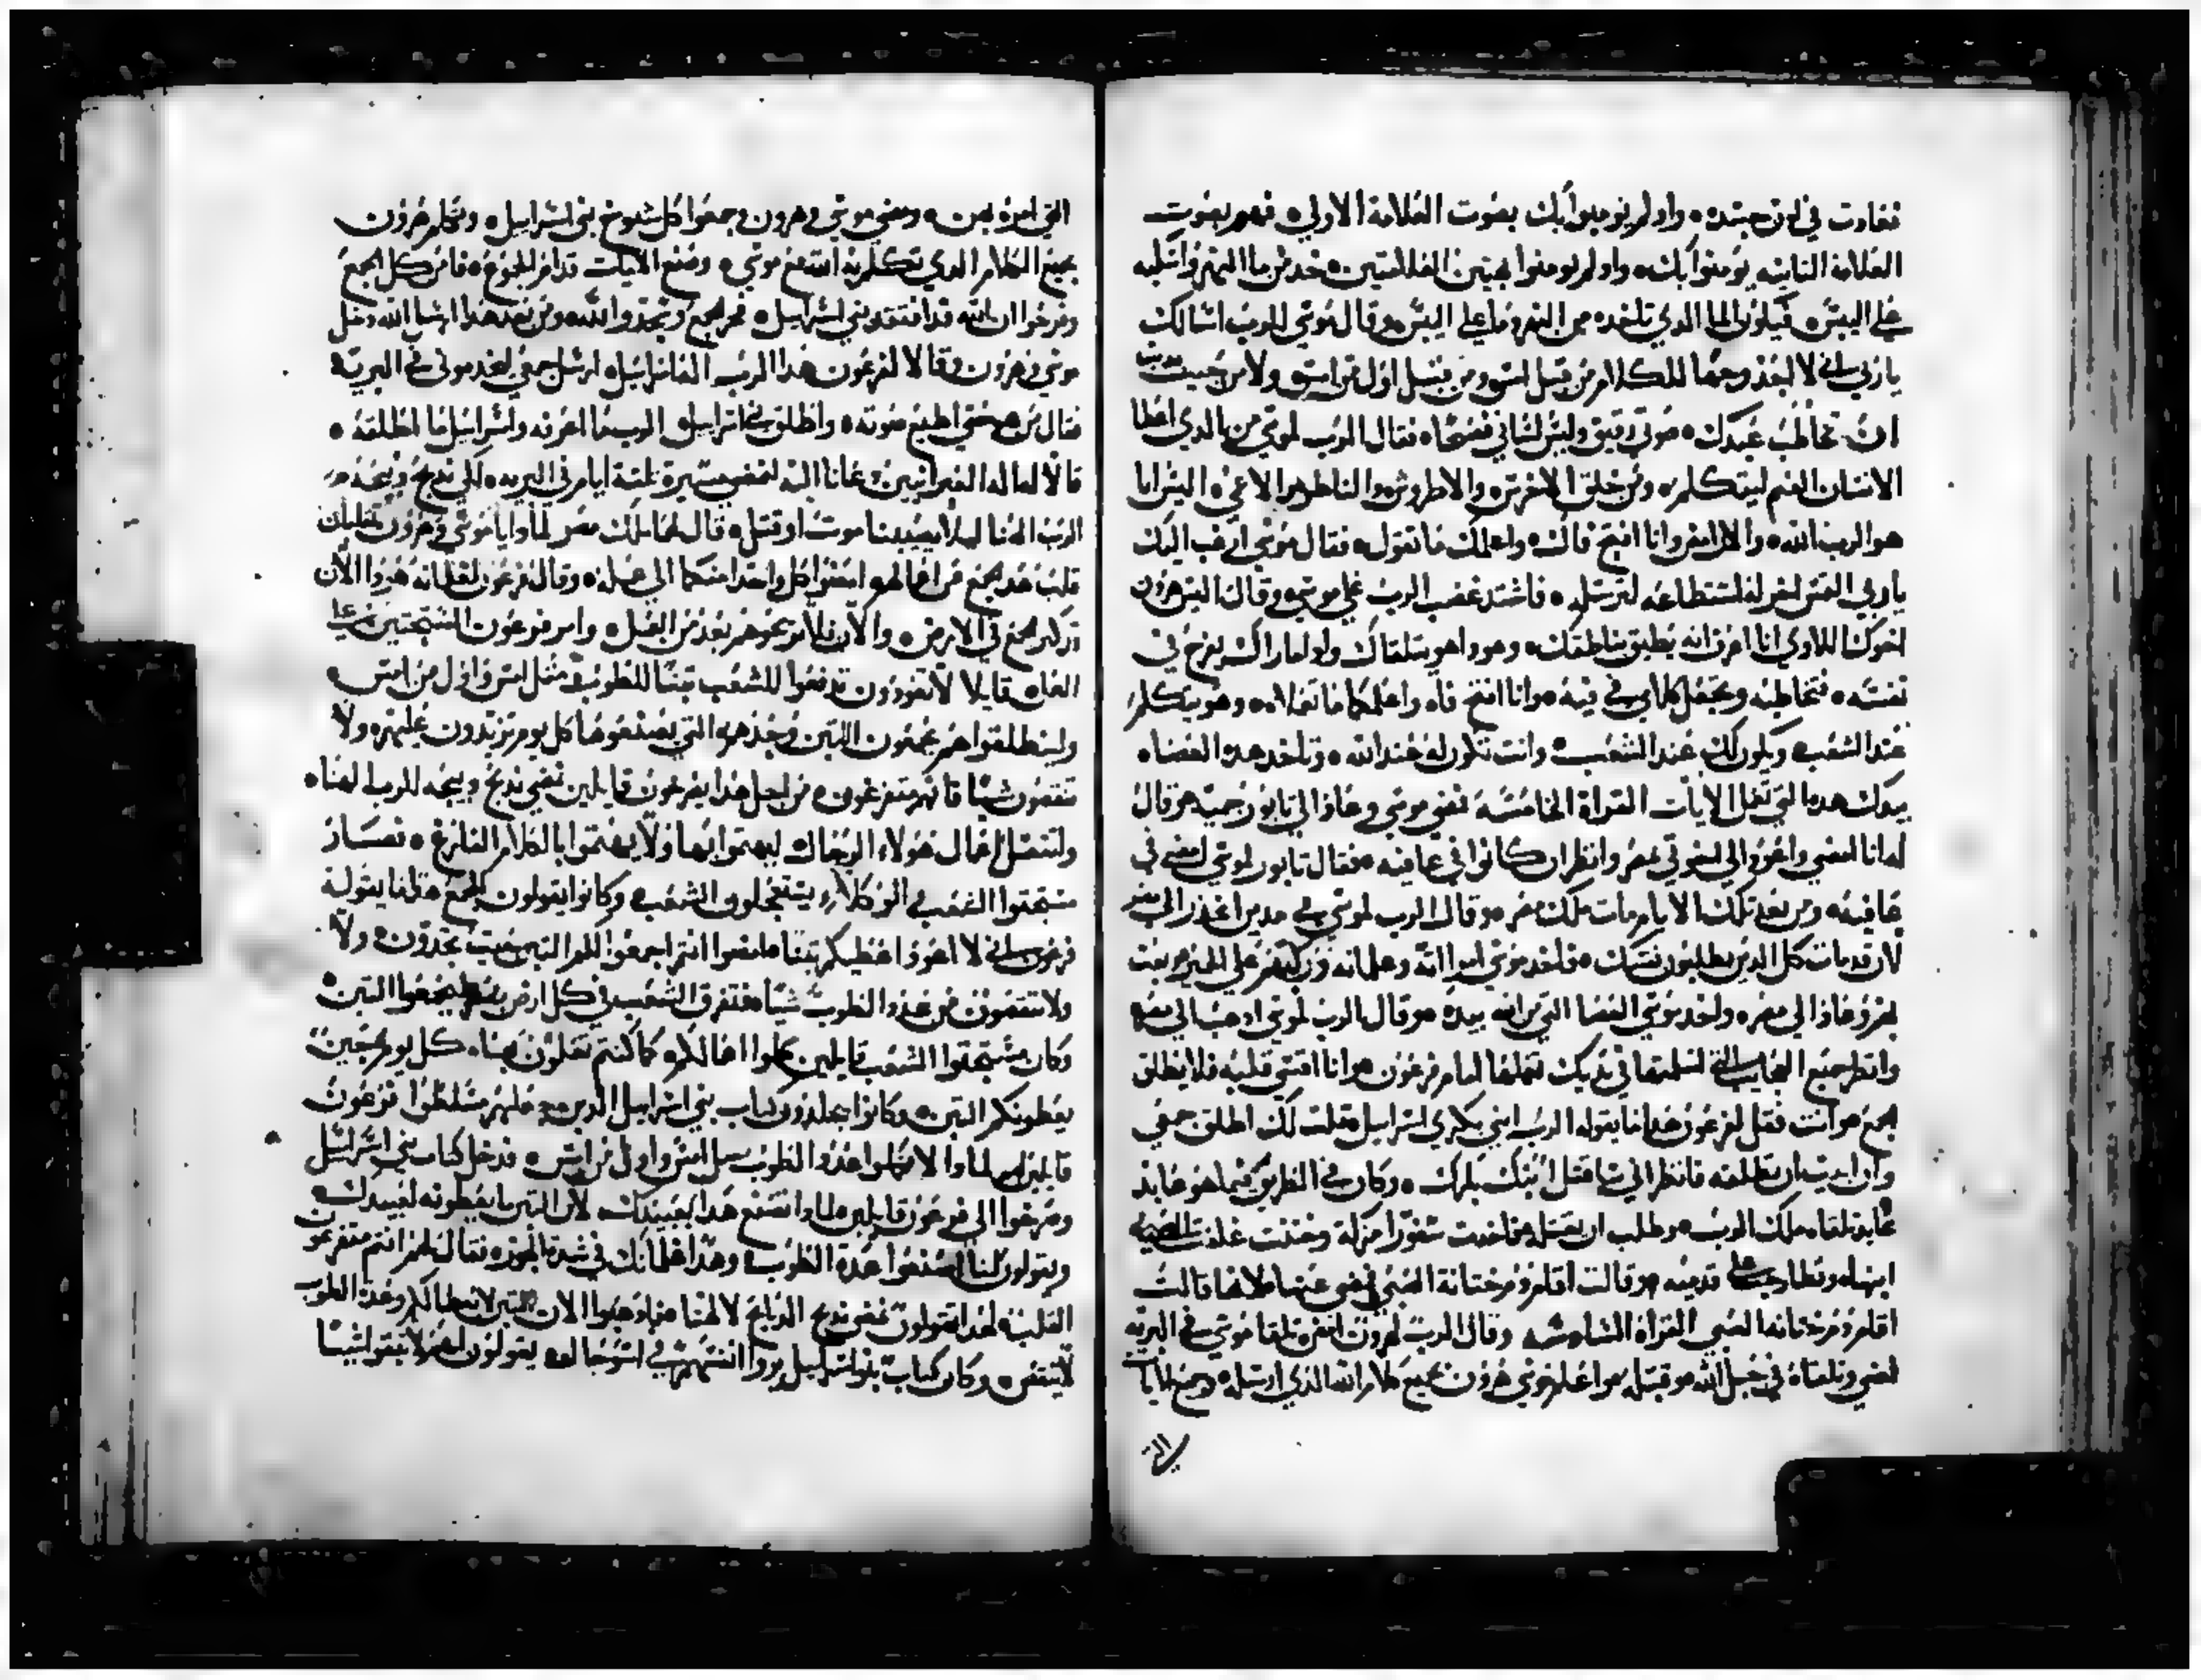 فعادت في لون جسده ۞ واذ لم يومنوا بك بصوت العلامة الاولي ۞ فهم بصوت
العلامة الثانيه يومنوا بك ۞ واذ لم يومنوا بهتين العلامتين ۞ خد من ما النهر واسكبه
علي اليبس ۞ فيكون الما الدي تاخده من النهر دما علي اليبس ۞ وقال موسي للرب اسالك
يارب لا اجد وجها للكلام من قبل امس ومن قبل اول من امس ولا من حيث بديت
ان تخاطب عبدك ۞ صوتي رقيق وليس لساني فصيحا ۞ فقال الرب لموسي من الدي اعطا
الانسان الفم ليتكلم ۞ ومن خلق الاخرس والاطروش والناظر والاعمي ۞ اليس انا
هو الرب الله ۞ والان امض وانا افتح فاك ۞ واعلمك ما تقول ۞ فقال موسي ارغب اليك
يا ربي التمس لغيري استطاعه لترسله ۞ فاشتد غضب الرب علي موسي ۞ وقال اليس هرون
اخوك اللاوي انا اعرف انه يطيق مناطقتك ۞ وهو داهو يتلقاك واذا راك يفرح في
نفسه ۞ فتخاطبه وتجعل كلامي في فيه ۞ وانا افتح فاه واعلمكما ما تعملا ۞ وهو يتكلم
عند الشعب ۞ ويكون لك عند الشعب ۞ وانت تكون له عند الله ۞ وتاخد هده العصاه
بيدك هده التي تعمل الايات القراة الخامسة فمضي موسي وعاد الي تابور حميه ۞ وقال
له انا امضي واعود الي اخوتي بمصر وانظر ان كانوا في عافيه ۞ فقال تابور لموسي امض في
عافيه ۞ ومن بعد تلك الايام مات ملك مصر ۞ وقال الرب لموسي في مدين انحدر الي مصر
لان قد مات كل الدين يطلبون نفسك ۞ فاخد موسي امراته وغلمانه وركبهم علي الحمير
وعاد الي مصر ۞ واخد موسي العصا التي من الله بيده ۞ وقال الرب لموسي ادهب الي مصر
وانظر جميع العجايب التي اسلمتها في يديك تعملها امام فرعون ۞ وانا اقسي قلبه فلا يطلق
الجمع ۞ وانت فقل لفرعون هدا ما يقوله الرب ابني بكري اسراييل ۞ قلت لك اطلق جمعي
وان ابيت ان تطلقه فانظر اني ساقتل ابنك بكرك ۞ وكان في الطريق فيما هو عابد
تلقاه ملاك الرب ۞ وطلب ان يقتله ۞ فاخدت صفورا مزكة وختنت غلفة الصبي
ابنها ۞ وتطارحت علي قدميه ۞ وقالت اقام دم ختانة الصبي فمضي عنها ملاكها قالت
اقام دم ختانة الصبي القراة السادسه وقال الرب لهرون امض تلقا موسي في البريه
فمضي وتلقاه في جبل الله ۞ وقبله ۞ واعلم موسي هرون بجميع كلام الله الدي ارسله ۞ وجميع الايات
التي
التي امره بهن ۞ ومضي موسي وهرون وجمعوا كل شيوخ بني اسراييل ۞ وتكلم هرون
بجميع الكلام الدي تكلم به الله مع موسي ۞ وصنع الايات قدام الجموع ۞ فامن كل الجمع
وفرحوا ان الله قد افتقد بني اسراييل ۞ فخر الجمع وسجدوا لله ۞ ومن بعد هدا دخل
موسي وهرون وقالا لفرعون هدا الرب اله اسراييل ارسل جمعي ليخدموني في البريه
فقال من هو حتي اطيع صوته ۞ واطلق بني اسراييل الرب ما اعرفه واسراييل ما اطلقه ۞
قالا له اله العبرانيين دعانا اليه لنمضي مسيرة تلتة ايام في البريه ۞ لكي ندبح ونسجد
للرب الهنا ليلا يصيبنا موت او قتل ۞ قال لهما ملك مصر لمادا يا موسي وهرون تقلبان
قلب هدا الجمع من اعمالهم امضوا كل واحد منكما الي عمله ۞ وقال فرعون لغلمانه هودا الان
قد كتر الجمع في الارض ۞ والان فلا تريحوهم بعد من العمل ۞ وامر فرعون المستحتين علي
العمل قايلا لا تعودون تدفعوا للشعب تبنا للطوب ۞ مثل امس واول من امس ۞
ولينطلقوا هم يجمعون التبن وحدهم ۞ التي يصنعوها كل يوم تزيدون عليهم ۞ ولا
تنقصون شيا فانهم متفرغون ۞ من اجل هدا يصرخون قايلين نمضي ندبح ونسجد للرب الهنا ۞
ولتتقل اعمال هولاء الرجال ليهتموا بها ولا يهتموا بالكلام الفارغ ۞ فصار
مستحتوا الشعب الوكلاء يستعجلون الشعب ۞ وكانوا يقولون للجمع هدا ما يقوله
فرعون لا اعود اعطيكم تبنا فامضوا انتم اجمعوا لكم التبن حيت تجدون ۞ ولا
ولا تنقصون من عدد الطوب شيا ۞ فتفرق الشعب في كل ارض مصر ليجمعوا التبن ۞
وكان مستحتوا الشعب قايلين كملوا اعمالكم كما كنتم تعملون ۞ كل يوم حين
يعطونكم التبن ۞ وكانوا يجلدون كتاب بني اسراييل الدين عليهم مسلطوا فرعون
قايلين لمادا لا تكملوا عدد الطوب مثل امس واول من امس ۞ فدخل كتاب بني اسراييل
وصرخوا الي فرعون قايلين لمادا تصنع هدا بعبيدك ۞ لان التبن ما يعطونه لعبيدك ۞
ويقولون لنا اصنعوا عدة الطوب ۞ وهدا غلمانك في شدة الجور ۞ فقال لهم انتم متفرغون
لهدا تقولون نمضي ندبح الدبايح لالهنا ۞ فادهبوا الان التبن لا يعطا لكم وعدة الطوب
لا ينقص ۞ وكان كتاب بنو اسراييل يروا انفسهم في اسوا حال ۞ يقولون لهم لا تنقصوا شيا